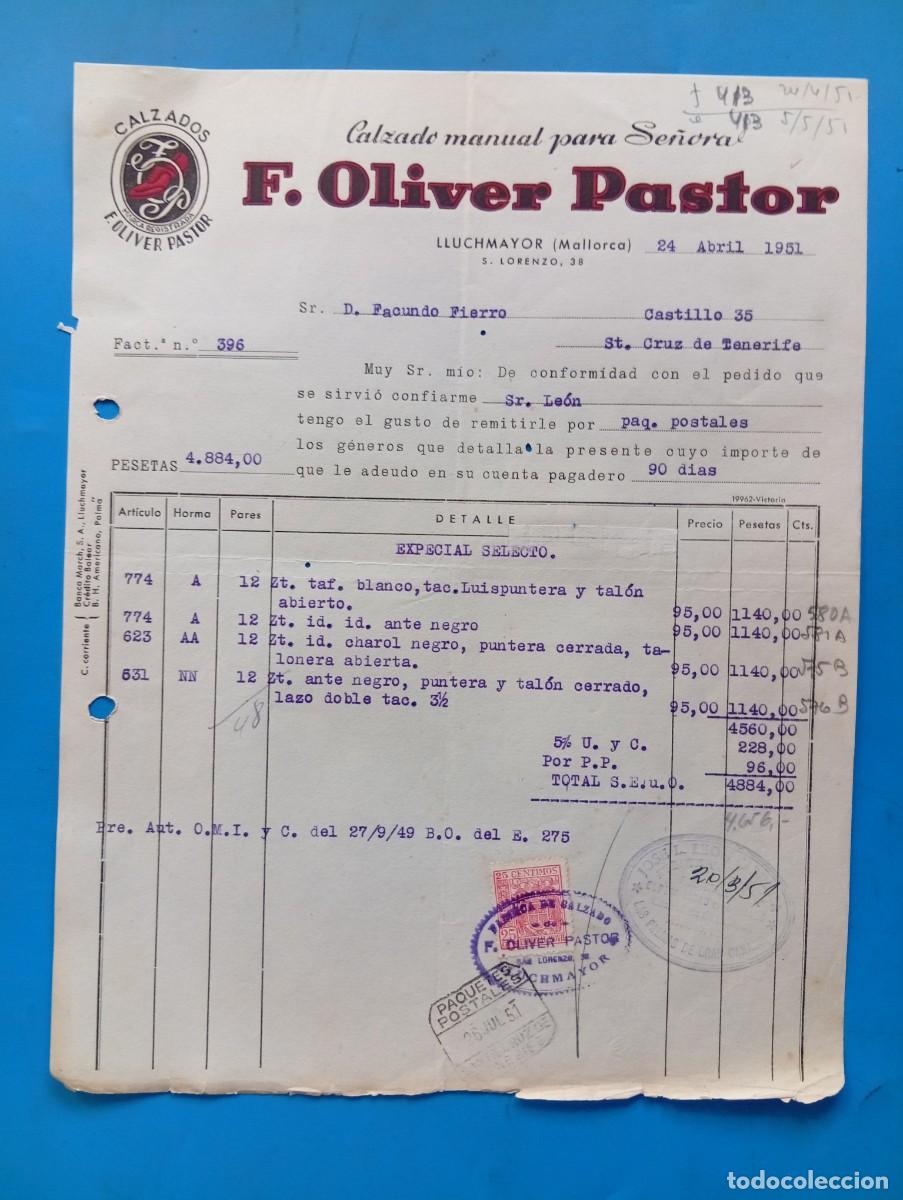 ƒ 413 24/4/51
e 413 5/5/51
CALZADOS
MARCA REGISTRADA
F. OLIVER PASTOR
Calzado manual para Señora
F. Oliver Pastor
LLUCHMAYOR (Mallorca) 24 Abril 1951
S. LORENZO, 38
Sr. D. Facundo Fierro Castillo 35
Fact.ª n.º 396 St. Cruz de Tenerife
Muy Sr. mío: De conformidad con el pedido que
se sirvió confiarme Sr. León
tengo el gusto de remitirle por paq. postales
los géneros que detalla la presente cuyo importe de
PESETAS 4.884,00 que le adeudo en su cuenta pagadero 90 dias
19962-Victoria
C. corriente
Banca March, S. A., Lluchmayor
Crédito Balear
B. H. Americano, Palma
Artículo Horma Pares DETALLE Precio Pesetas Cts.
EXPECIAL SELECTO.
774 A 12 Zt. taf. blanco, tac.Luispuntera y talón
abierto. 95,00 1140,00 580A
774 A 12 Zt. id. id. ante negro 95,00 1140,00 581A
623 AA 12 Zt. id. charol negro, puntera cerrada, ta-
lonera abierta. 95,00 1140,00 575B
631 NN 12 Zt. ante negro, puntera y talón cerrado,
lazo doble tac. 3½ 95,00 1140,00 576B
48
4560,00
5% U. y C. 228,00
Por P.P. 96,00
TOTAL S.E.u.O. 4884,00
4.656,-
Pre. Aut. O.M.I. y C. del 27/9/49 B.O. del E. 275
25 CENTIMOS
25
JOSE L.
20/3/51
FABRICA DE CALZADO
de
F. OLIVER PASTOR
SAN LORENZO, 38
LLUCHMAYOR
PAQUETES
POSTALES
26 JUL 51
todocoleccion